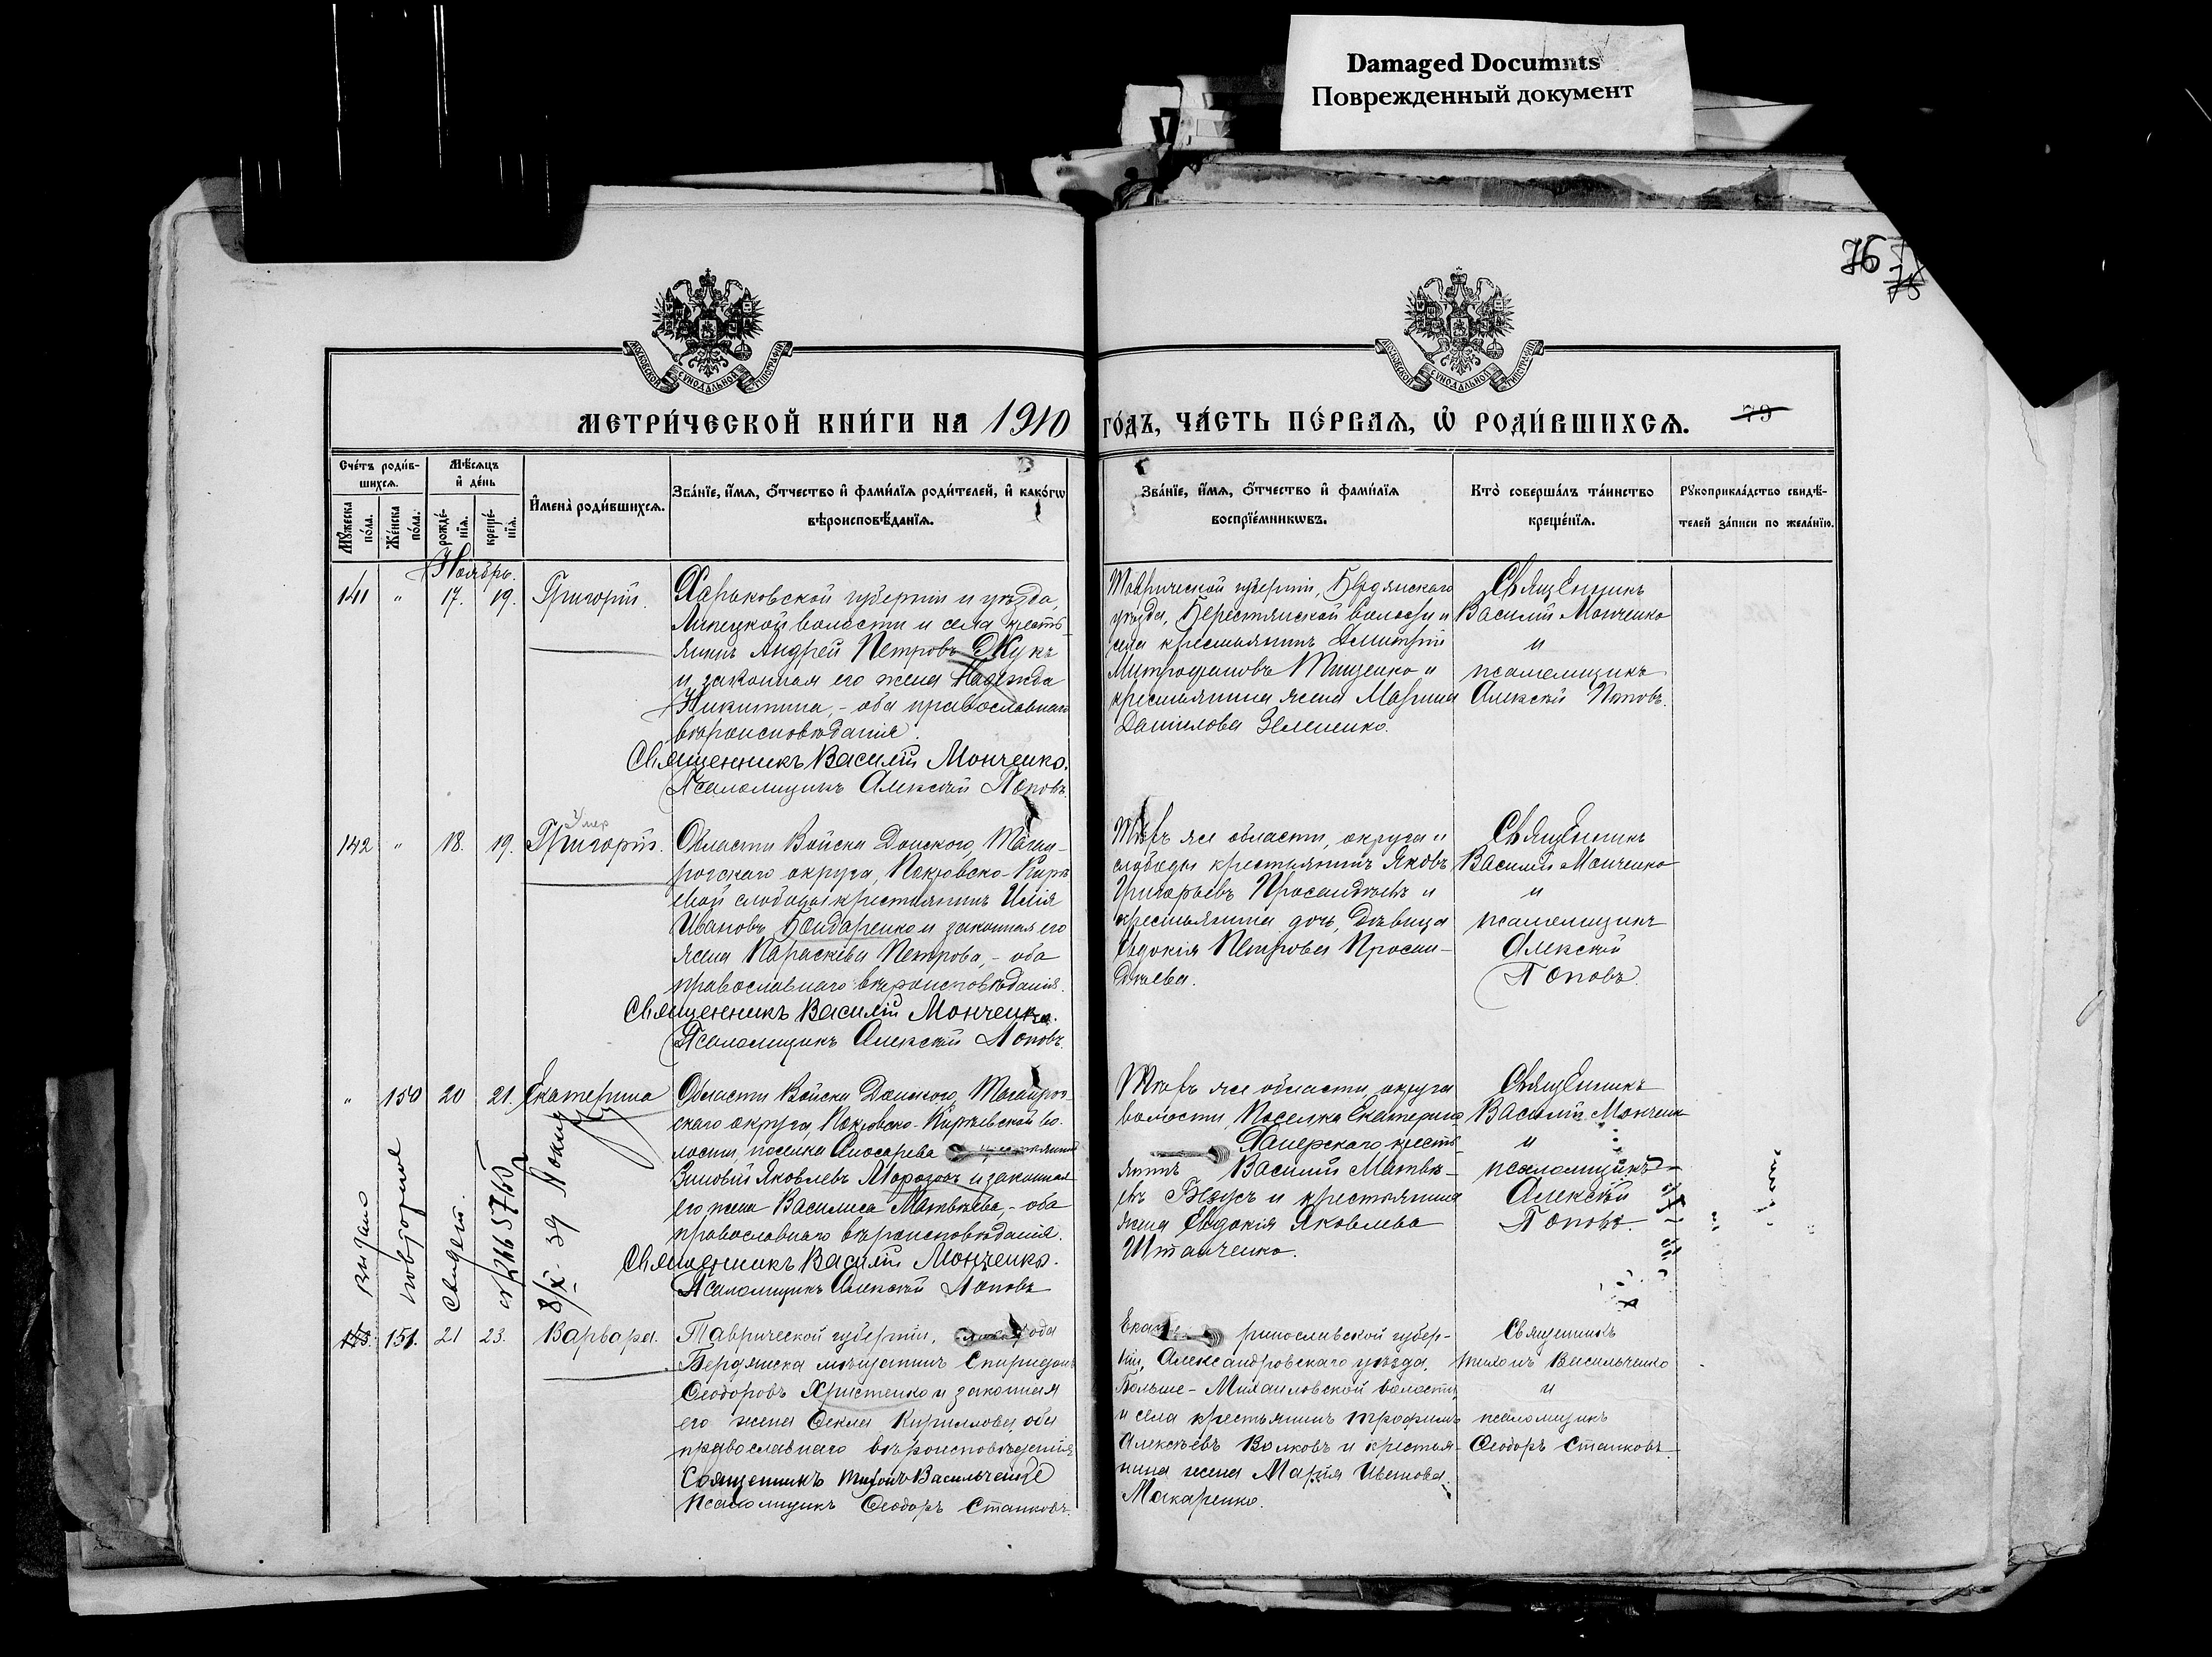 Damaged Documnts
Поврежденный документ
76
78
МОСКОВСКОЙ СѴНОДАЛЬНОЙ ТИПОГРАФІИ
МОСКОВСКОЙ СѴНОДАЛЬНОЙ ТИПОГРАФІИ
МЕТРИ́ЧЕСКОЙ КНИ́ГИ НА 1910 ГО́ДЪ, ЧА́СТЬ ПЕ́РВАЯ, Ѡ РОДИ́ВШИХСѦ. 79
Сче́тъ роди́в-
шихсѧ.
Мꙋ́жеска по́ла.
Же́нска по́ла.
Мѣ́сѧцъ и҆ де́нь
рожде́-нїѧ.
креще́-нїѧ.
И҆мена̀ роди́вшихсѧ.
Зва́нїе, и҆́мѧ, ѻ҆́тчество и҆ фами́лїѧ роди́телей, и҆ како́гѡ
вѣроисповѣ́данїѧ.
Зва́нїе, и҆́мѧ, ѻ҆́тчество и҆ фами́лїѧ
воспрїе́мникѡвъ.
Кто̀ соверша́лъ та́инство
креще́нїѧ.
Рꙋкоприкла́дство свидѣ́-
телей за́писи по жела́нїю.
Ноябрь.
141 " 17. 19. Григорій.
Харьковской губерніи и уѣзда,
Липецкой волости и села кресть-
янинъ Андрей Петровъ Жукъ
и законная его жена Надежда
Никитина, - оба православнаго
вѣроисповѣданія.
Священникъ Василій Монченко.
Псаломщикъ Алексѣй Поповъ.
Таврической губерніи, Бердянскаго
уѣзда, Берестянской волости и
села крестьянинъ Димитрій
Митрофановъ Тищенко и
крестьянина жена Марина
Даніилова Зелененко.
Священникъ
Василій Монченко
и
псаломщикъ
Алексѣй Поповъ.
142 " 18. 19. Григорій.
Умер
Области Войска Донского, Таган-
рогскаго округа, Покровско-Кирѣ-
евой слободы крестьянинъ Илія
Ивановъ Бондаренко и законная его
жена Параскева Петрова, - оба
православнаго вѣроисповѣданія.
Священникъ Василій Мончено.
Псаломщикъ Алексѣй Поповъ.
Той же области, округа и
слободы крестьянинъ Яковъ
Григорьевъ
крестьянина дочь, дѣвица
Евдокія Петрова
Священникъ
Василій Монченко
и
псаломщикъ
Алексѣй
Поповъ.
" 150 20 21. Екатерина
Области Войска Донского, Таганрог-
скаго округа, Покровско-Кирѣевской во-
лости, поселка
Зиновій Яковлевъ Морозовъ и законная
его жена Василиса Матвѣева, - оба
православнаго вѣроисповѣданія.
Священникъ Василій Мончено.
Псаломщикъ Алексѣй Поповъ
Той же области, округа
волости, поселка Екатерино
кресть-
янинъ Василій Матвѣ-
евъ и крестьянина
жена Евдокія Яковлева
Штанченко.
Священникъ
Василій Мончен
и
псаломщикъ
Алексѣй
Поповъ.
выдано
повторное
свидет.
8/X 39
151. 21 23. Варвара.
Таврической губерніи, города
Бердянска мѣщанинъ Спиридонъ
Ѳеодоровъ Христенко и законная
его жена Ѳекла Кириллова, оба
православнаго вѣроисповѣданія
Священникъ Тихонъ Васильченко
Псаломщикъ Ѳеодоръ Станковъ.
Екатеринославской губер-
ніи, Александровскаго уѣзда,
Больше-Михаиловской волости
и села крестьянинъ Трофимъ
Алексѣевъ Волковъ и крестья-
нина жена Марія Иванова
Макаренко.
Священникъ
Тихонъ Васильченко
и
псаломщикъ
Ѳеодоръ Станковъ.